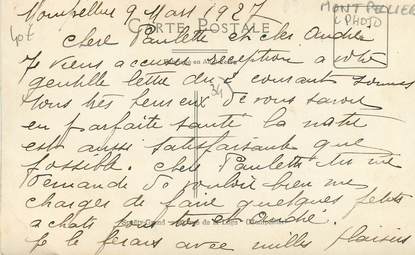 Montpellier 9 Mars 1927
CARTE POSTALE
MONTPELLIER
PHOTO
Chère Paulette et cher André
Je viens accuser réception a votre
gentille lettre du 3 courant sommes
tous très heureux de vous savoir
en parfaite santé la notre
est aussi satisfaisante que
possible. Chère Paulette tu me
demande de vouloir bien me
charger de faire quelques petits
achats tres et André.
Je le ferais avec milles plaisirs